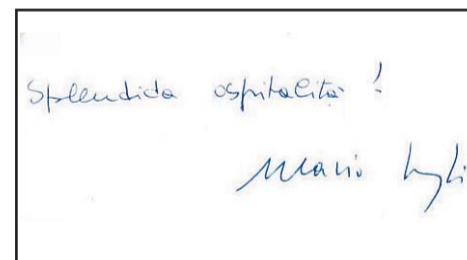 Splendida ospitalità!
Mario